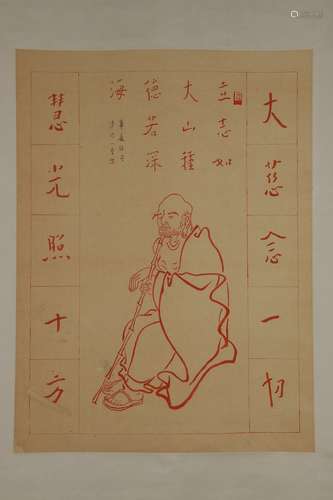 大慈念一切
立志如
大山種
德若深
海
慧光照十方